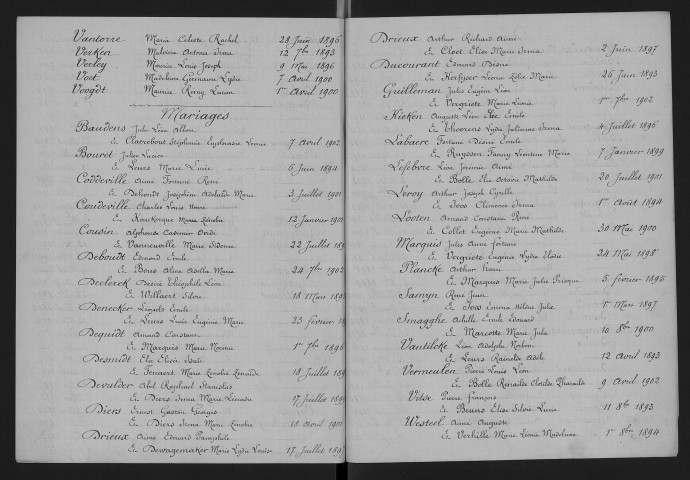 Vantorre Maria Celeste Rachel 28 Juin 1896
Verken Malvina Antonia Irma 12 7bre 1893
Verley Maurice Louis Joseph 9 Mai 1896
Voet Madeleine Germaine Lydie 7 Avril 1900
Voogdt Maurice Remy Lucien 1er Avril 1900
Mariages
Baudens Jules Léon Allon
Et Clarebout Stéphanie Euphrasie Léonie 7 Avril 1902
Bouret Julien Lucien
Et Leurs Marie Lucie 6 Juin 1894
Coddeville Aimé Fortuné René
Et Dehondt Joséphine Adelaïde Marie 3 Juillet 1901
Coudeville Charles Louis Henri
Et Kouckorque Marie Zénobie 12 Janvier 190
Cousin Alphonse Casimir Ovide
Et Vanneuville Marie Sidonie 22 Juillet 18
Deboudt Edmond Emile
Et Boris Aline Adella Marie 24 7bre 1902
Declerck Désiré Théophile Léon
Et Willaert Silvie 18 Mars 189
Denecker Léopold Emile
Et Leurs Lucie Eugénie Marie 23 février 18
Dequidt Amand Constant
Et Marquis Marie Noémie 1er 7bre 1896
Desmidt Elie Eloïe
Et Fenaert Marie Zénobie Zénaïde 18 Juillet 189
Devulder Abel Raphaël Stanislas
Et Diers Irma Marie Léonie 17 Juillet 189
Diers Ernest Gaston Georges
Et Diers Irma Marie Zénobie 18 Avril 1901
Drieux Aimé Edmond Pamphile
Et Dewagemaker Marie Lydie Louise 17 Juillet 1897
Drieux Arthur Richard Aimé
Et Cloet Elise Marie Irma 2 Juin 1897
Ducourant Edmond Désiré
Et Kerfyser Léonie Zélie Marie 26 Juin 1893
Guilleman Jules Eugène Léon
Et Vergriete Marie Léonie 1er 7bre 1902
Kieken Auguste Léon Elie Emile
Et Thoorens Lydie Julienne Irma 4 Juillet 1896
Labaere Fortuné Désiré Emile
Et Ruyssen Fanny Léontine Marie 7 Janvier 1899
Lefebvre Léon Jérémie Aimé
Et Bolle Elia Octavie Mathilde 20 Juillet 1901
Leroy Arthur Joseph Cyrille
Et Joos Clémence Irma 1er Août 1894
Looten Amand Constant René
Et Collet Eugénie Marie Mathilde 30 Mai 1900
Marquis Jules Aimé fortuné
Et Vergriete Eugénie Lydie Elodie 24 Mai 1898
Plancke Arthur Henri
Et Marquis Marie Julie Prisque 5 février 1895
Samyn René Jean
Et Joos Emma Hélène Julie 1er Mars 1897
Smagghe Achille Ernest Edouard
Et Marcotte Marie Julie 10 8bre 1900
Vantilcke Léon Adolphe Norbert
Et Leurs Rainelde Adèle 12 Avril 1893
Vermeulen Pierre Louis Léon
Et Bolle Renilde Clotilde Zhenaïde 9 Avril 1902
Vitse Pierre François
Et Beuns Elise Silvie Lucie 11 8bre 1893
Westeel Aimé Auguste
Et Verhille Marie Léonie Madeleine 1er 8bre 1894